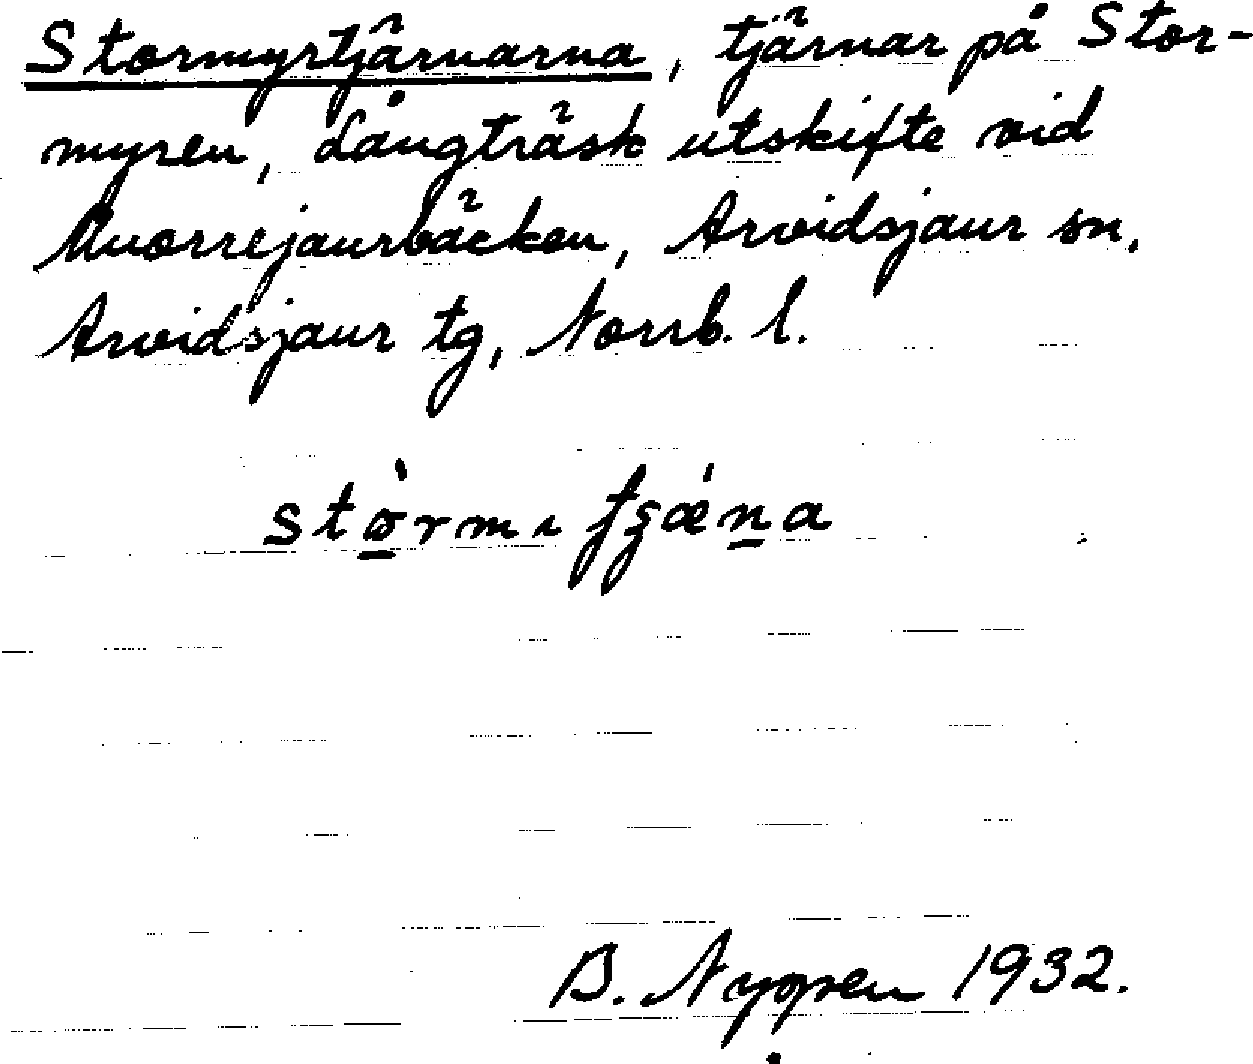 Stormyrtjärnarna, tjärnar på Stor-
myren, Långträsk utskifte vid
Muorrejaurbäcken, Arvidsjaur sn,
Arvidsjaur tg, Norrb. l.
B. Nyppen 1932.